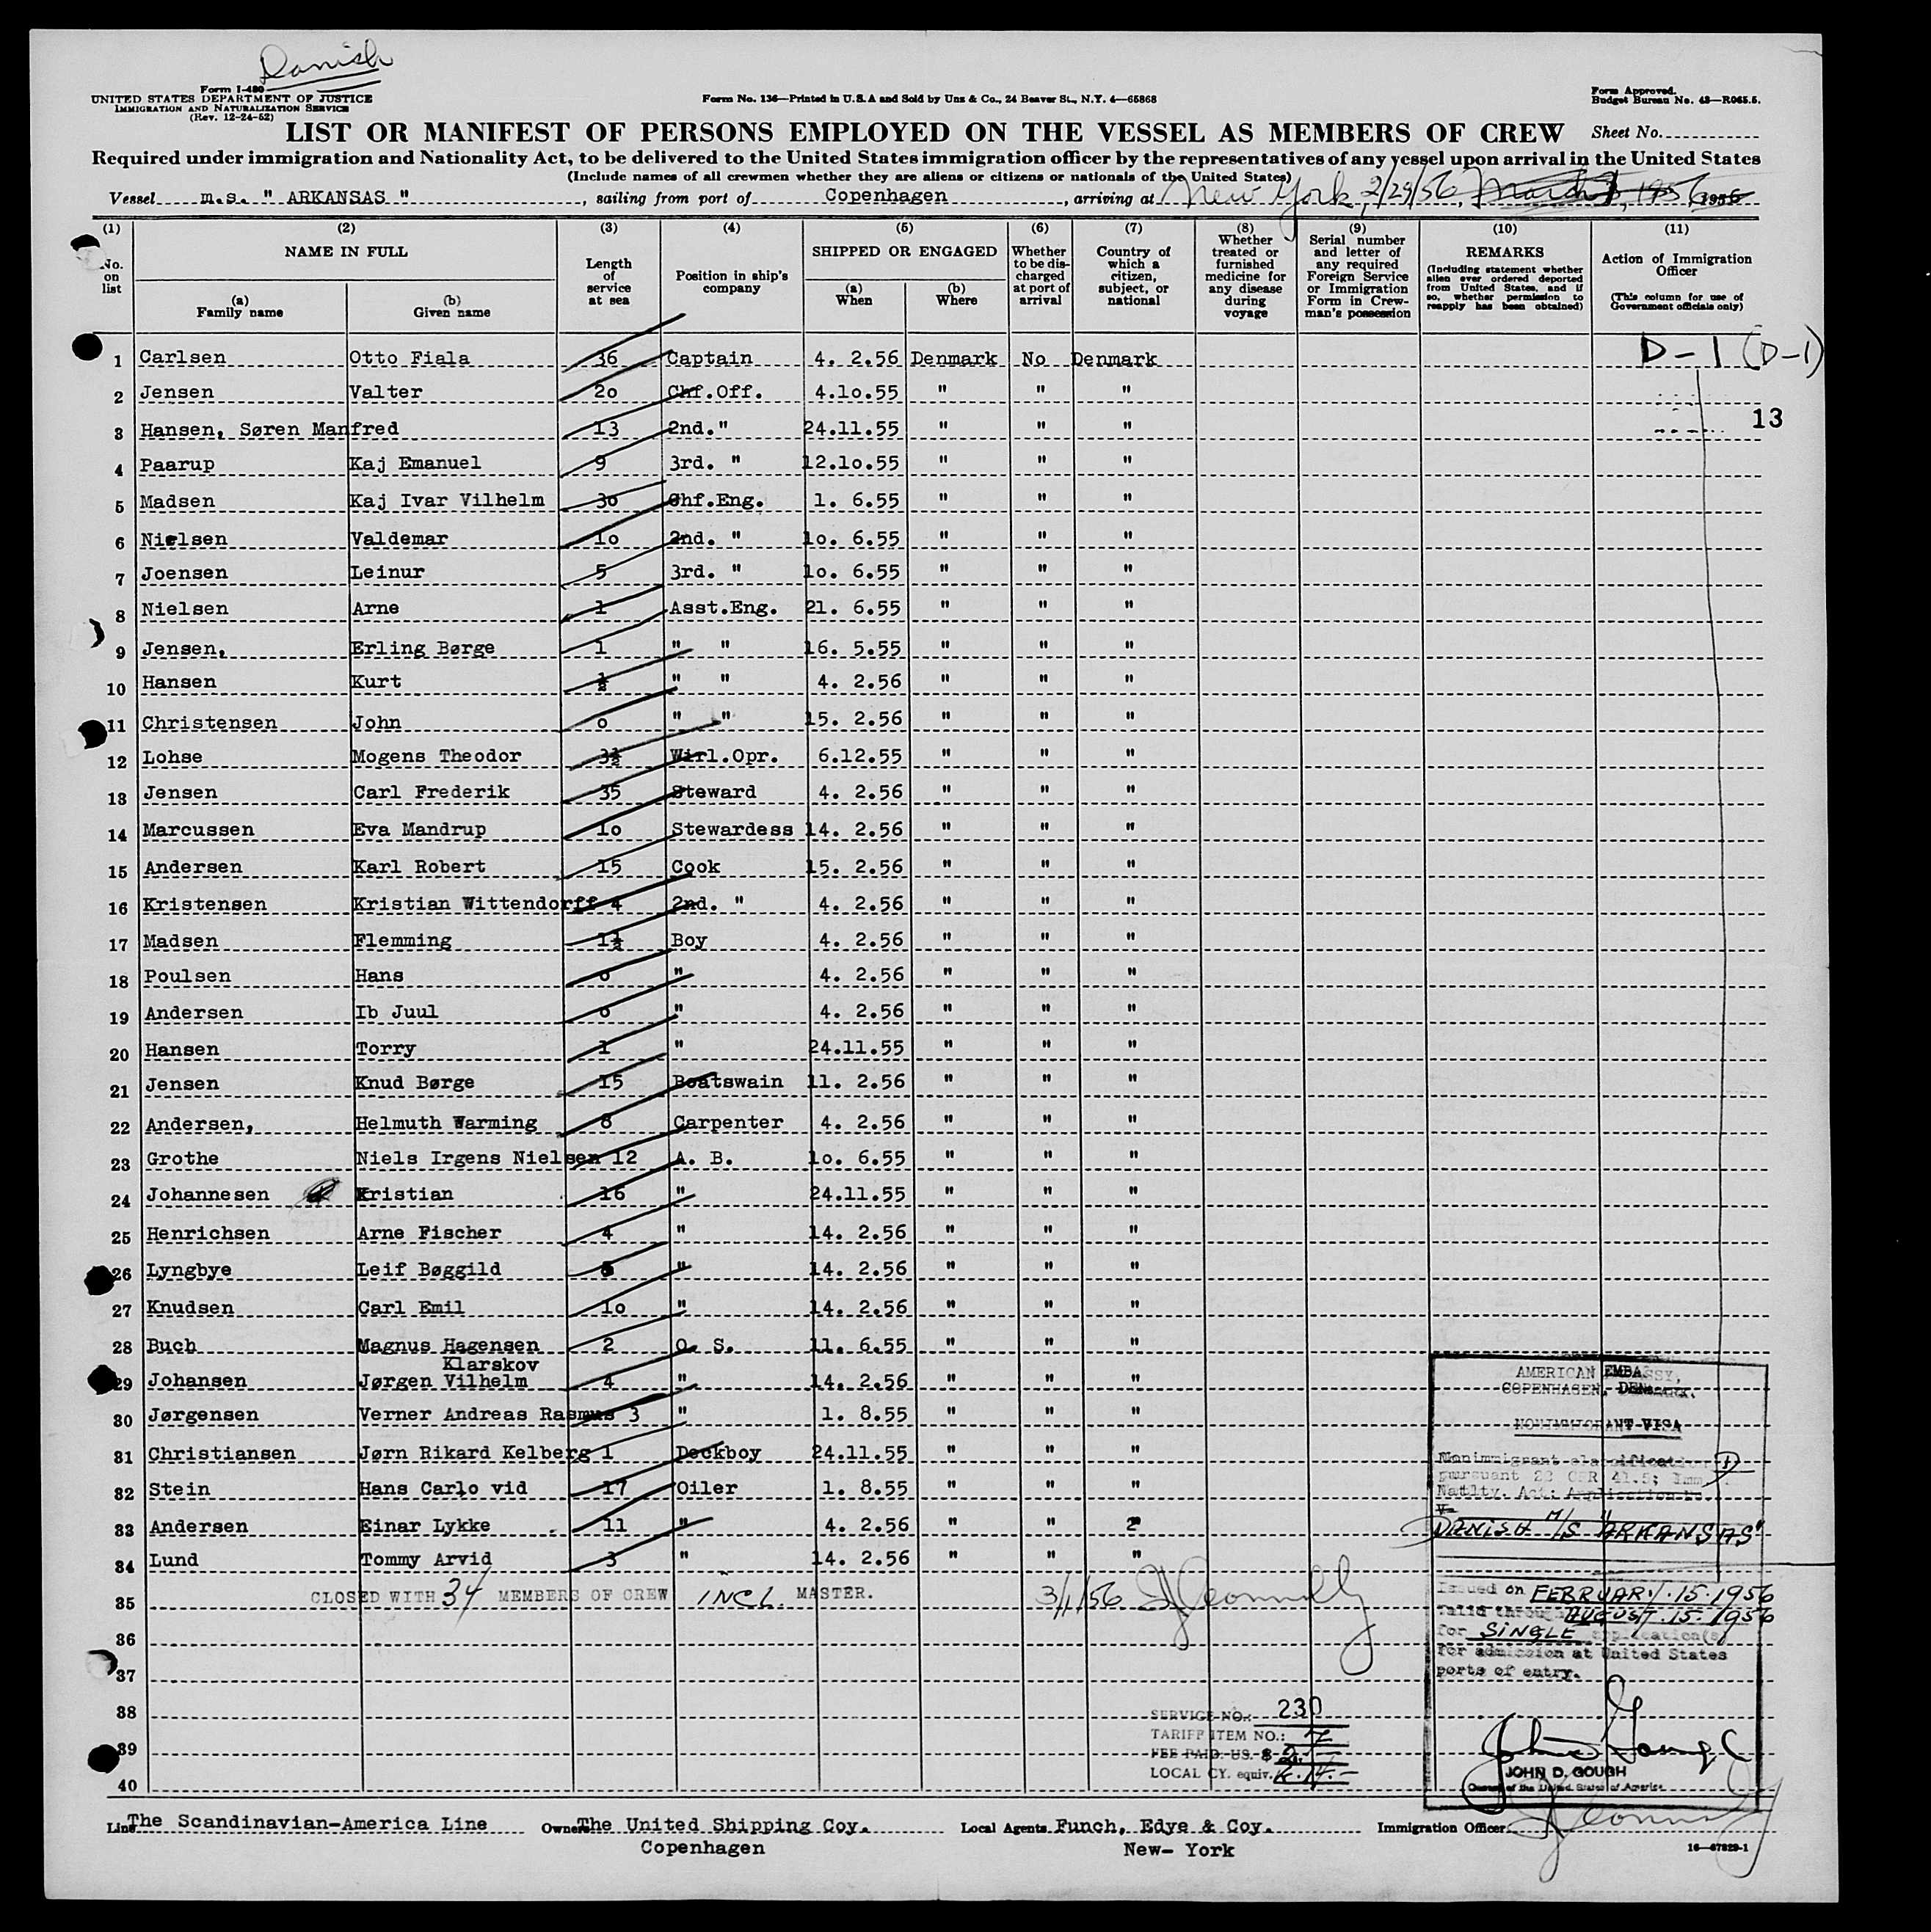 Danish
Form I-480
UNITED STATES DEPARTMENT OF JUSTICE
IMMIGRATION AND NATURALIZATION SERVICE
(Rev. 12-24-52)
Form No. 136—Printed in U.S.A and Sold by Unz & Co., 24 Beaver St., N.Y. 4—65868
Form Approved.
Budget Bureau No. 43—R065.5.
LIST OR MANIFEST OF PERSONS EMPLOYED ON THE VESSEL AS MEMBERS OF CREW Sheet No.
Required under immigration and Nationality Act, to be delivered to the United States immigration officer by the representatives of any vessel upon arrival in the United States
(Include names of all crewmen whether they are aliens or citizens or nationals of the United States)
Vessel m.s. " ARKANSAS ", sailing from port of Copenhagen, arriving at New York, 2/29/56, March 1, 1956 1956
(1) (2) (3) (4) (5) (6) (7) (8) (9) (10) (11)
No. on list
NAME IN FULL
(a) Family name
(b) Given name
Length of service at sea
Position in ship's company
SHIPPED OR ENGAGED
(a) When
(b) Where
Whether to be discharged at port of arrival
Country of which a citizen, subject, or national
Whether treated or furnished medicine for any disease during voyage
Serial number and letter of any required Foreign Service or Immigration Form in Crewman's possession
REMARKS
(Including statement whether alien ever ordered deported from United States, and if so, whether permission to reapply has been obtained)
Action of Immigration Officer
(This column for use of Government officials only)
1 Carlsen Otto Fiala 36 Captain 4. 2.56 Denmark No Denmark D-1 (D-1)
2 Jensen Valter 2o Chf.Off. 4.1o.55 " " "
3 Hansen, Søren Manfred 13 2nd." 24.11.55 " " " 13
4 Paarup Kaj Emanuel 9 3rd. " 12.1o.55 " " "
5 Madsen Kaj Ivar Vilhelm 3o Chf.Eng. 1. 6.55 " " "
6 Nielsen Valdemar 1o 2nd. " 1o. 6.55 " " "
7 Joensen Leinur 5 3rd. " 1o. 6.55 " " "
8 Nielsen Arne 1 Asst.Eng. 21. 6.55 " " "
9 Jensen, Erling Børge 1 " " 16. 5.55 " " "
10 Hansen Kurt ½ " " 4. 2.56 " " "
11 Christensen John o " " 15. 2.56 " " "
12 Lohse Mogens Theodor 3½ Wirl.Opr. 6.12.55 " " "
13 Jensen Carl Frederik 35 Steward 4. 2.56 " " "
14 Marcussen Eva Mandrup 1o Stewardess 14. 2.56 " " "
15 Andersen Karl Robert 15 Cook 15. 2.56 " " "
16 Kristensen Kristian Wittendorff 4 2nd. " 4. 2.56 " " "
17 Madsen Flemming 1½ Boy 4. 2.56 " " "
18 Poulsen Hans o " 4. 2.56 " " "
19 Andersen Ib Juul o " 4. 2.56 " " "
20 Hansen Torry 1 " 24.11.55 " " "
21 Jensen Knud Børge 15 Boatswain 11. 2.56 " " "
22 Andersen, Helmuth Warming 8 Carpenter 4. 2.56 " " "
23 Grothe Niels Irgens Nielsen 12 A. B. 1o. 6.55 " " "
24 Johannesen Kristian 16 " 24.11.55 " " "
25 Henrichsen Arne Fischer 4 " 14. 2.56 " " "
26 Lyngbye Leif Bøggild " 14. 2.56 " " "
27 Knudsen Carl Emil 1o " 14. 2.56 " " "
28 Buch Magnus Hagensen 2 O. S. 11. 6.55 " " "
Klarskov
29 Johansen Jørgen Vilhelm 4 " 14. 2.56 " " "
30 Jørgensen Verner Andreas Rasmus 3 " 1. 8.55 " " "
31 Christiansen Jørn Rikard Kelberg 1 Deckboy 24.11.55 " " "
32 Stein Hans Carlo vid 17 Oiler 1. 8.55 " " "
33 Andersen Einar Lykke 11 " 4. 2.56 " " "
34 Lund Tommy Arvid 3 " 14. 2.56 " " "
35 CLOSED WITH 34 MEMBERS OF CREW INCL. MASTER. 3/1/56 JConnelly
36
37
38
39
40
AMERICAN EMBASSY,
COPENHAGEN, DENMARK.
NONIMMIGRANT VISA
Nonimmigrant classification D
pursuant 22 CFR 41.5; Imm.
Natlty. Act: Application No.
V-
DANISH M/S "ARKANSAS"
Issued on FEBRUARY 15. 1956
Valid through AUGUST 15. 1956
for SINGLE application(s)
for admission at United States
ports of entry.
JOHN D. GOUGH
of the United States of America
SERVICE NO.: 230
TARIFF ITEM NO.: 7
FEE PAID: US. $ 2.
LOCAL CY. equiv. K. 14.-
Line The Scandinavian-America Line Owners The United Shipping Coy. Local Agents Funch, Edye & Coy. Immigration Officer JConnelly
Copenhagen New- York
16—67829-1